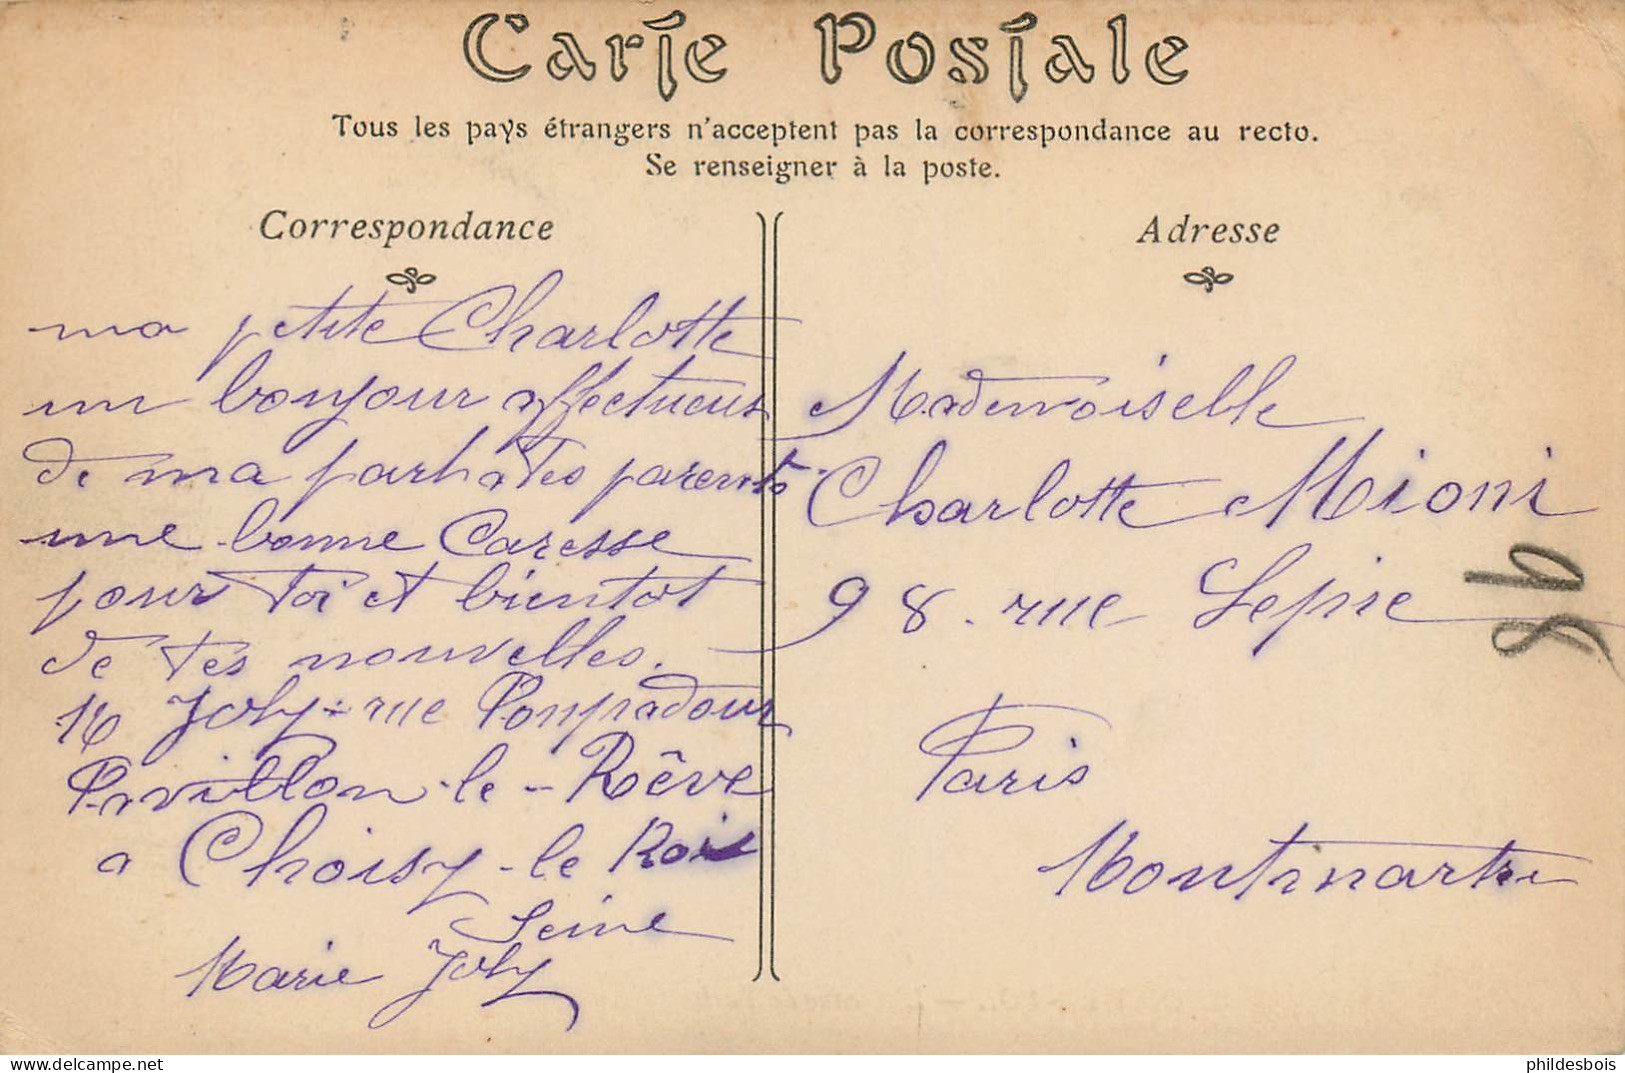 Carte Postale
Tous les pays étrangers n'acceptent pas la correspondance au recto.
Se renseigner à la poste.
Correspondance
ma petite Charlotte
un bonjour affectueux
de ma part a tes parents
une bonne Caresse
pour toi et bientot
de tes nouvelles.
M Joly - rue Pompadour
Pavillon-le-Rêve
a Choisy-le Roi
Seine
Marie Joly
Adresse
Mademoiselle
Charlotte Mioni
98. rue Lepic
Paris
Montmartre
98
delcampe.net
phildesbois